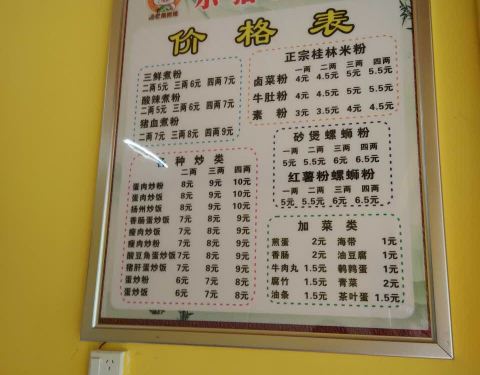 价格表
三鲜煮粉
二两5元 三两6元 四两7元
酸辣煮粉
二两5元 三两6元 四两7元
猪血煮粉
二两7元 三两8元 四两9元
正宗桂林米粉
一两 二两 三两 四两
卤菜粉 4元 4.5元 5元 5.5元
牛肚粉 4元 4.5元 5元 5.5元
素 粉 3元 3.5元 4元 4.5元
砂煲螺蛳粉
一两 二两 三两 四两
5元 5.5元 6元 6.5元
红薯粉螺蛳粉
一两 二两 三两 四两
5元 5.5元 6元 6.5元
种炒类
二两 三两 四两
蛋肉炒粉 8元 9元 10元
蛋肉炒饭 8元 9元 10元
扬州炒饭 8元 9元 10元
香肠蛋炒饭 7元 8元 9元
瘦肉炒饭 7元 8元 9元
瘦肉炒粉 7元 8元 9元
酸豆角蛋炒饭 7元 8元 9元
猪肝蛋炒饭 7元 8元 9元
蛋炒粉 6元 7元 8元
蛋炒饭 6元 7元 8元
加菜类
煎蛋 2元 海带 1元
香肠 2元 油豆腐 1元
牛肉丸 1.5元 鹌鹑蛋 1元
腐竹 1.5元 青菜 2元
油条 1.5元 茶叶蛋 1.5元